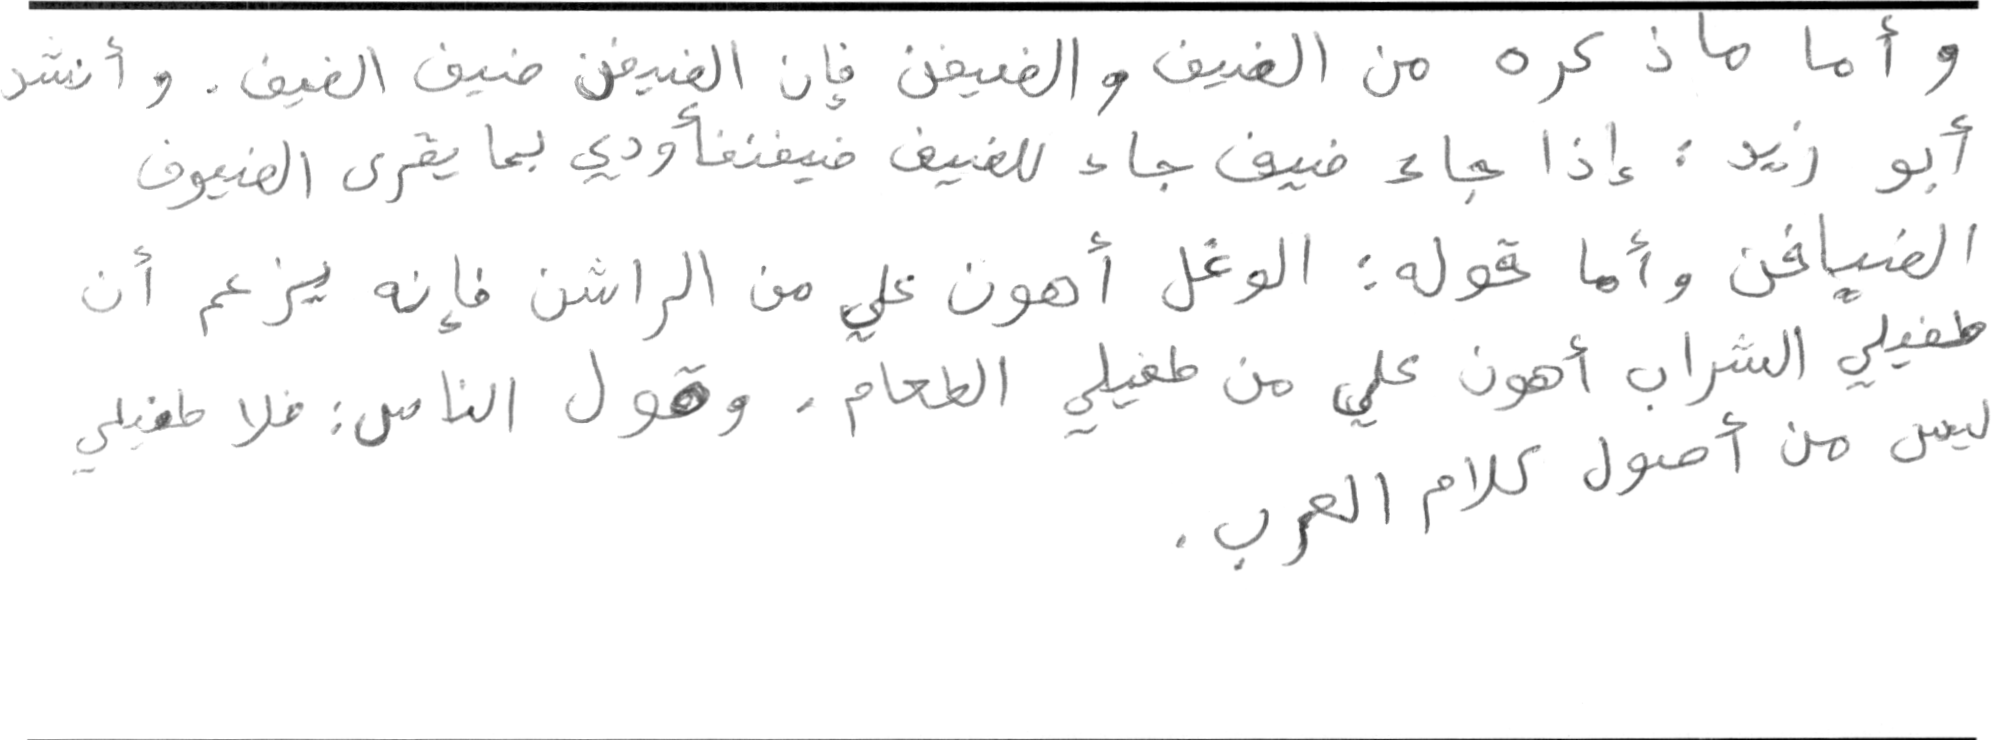 وأما ماذكره من الضيف والضيفن فإن الضيفن ضيف الضيف. وأنشد
أبو زيد: إذا جاء ضيف جاء للضيف ضيفنفأودي بما يقرى الضيوف
الضيافن وأما قوله: الوغل أهون علي من الراشن فإنه يزعم أن
طفيلي الشراب أهون علي من طفيلي الطعام. وقول الناس: فلا طفيلي
ليس من أصول كلام العرب.